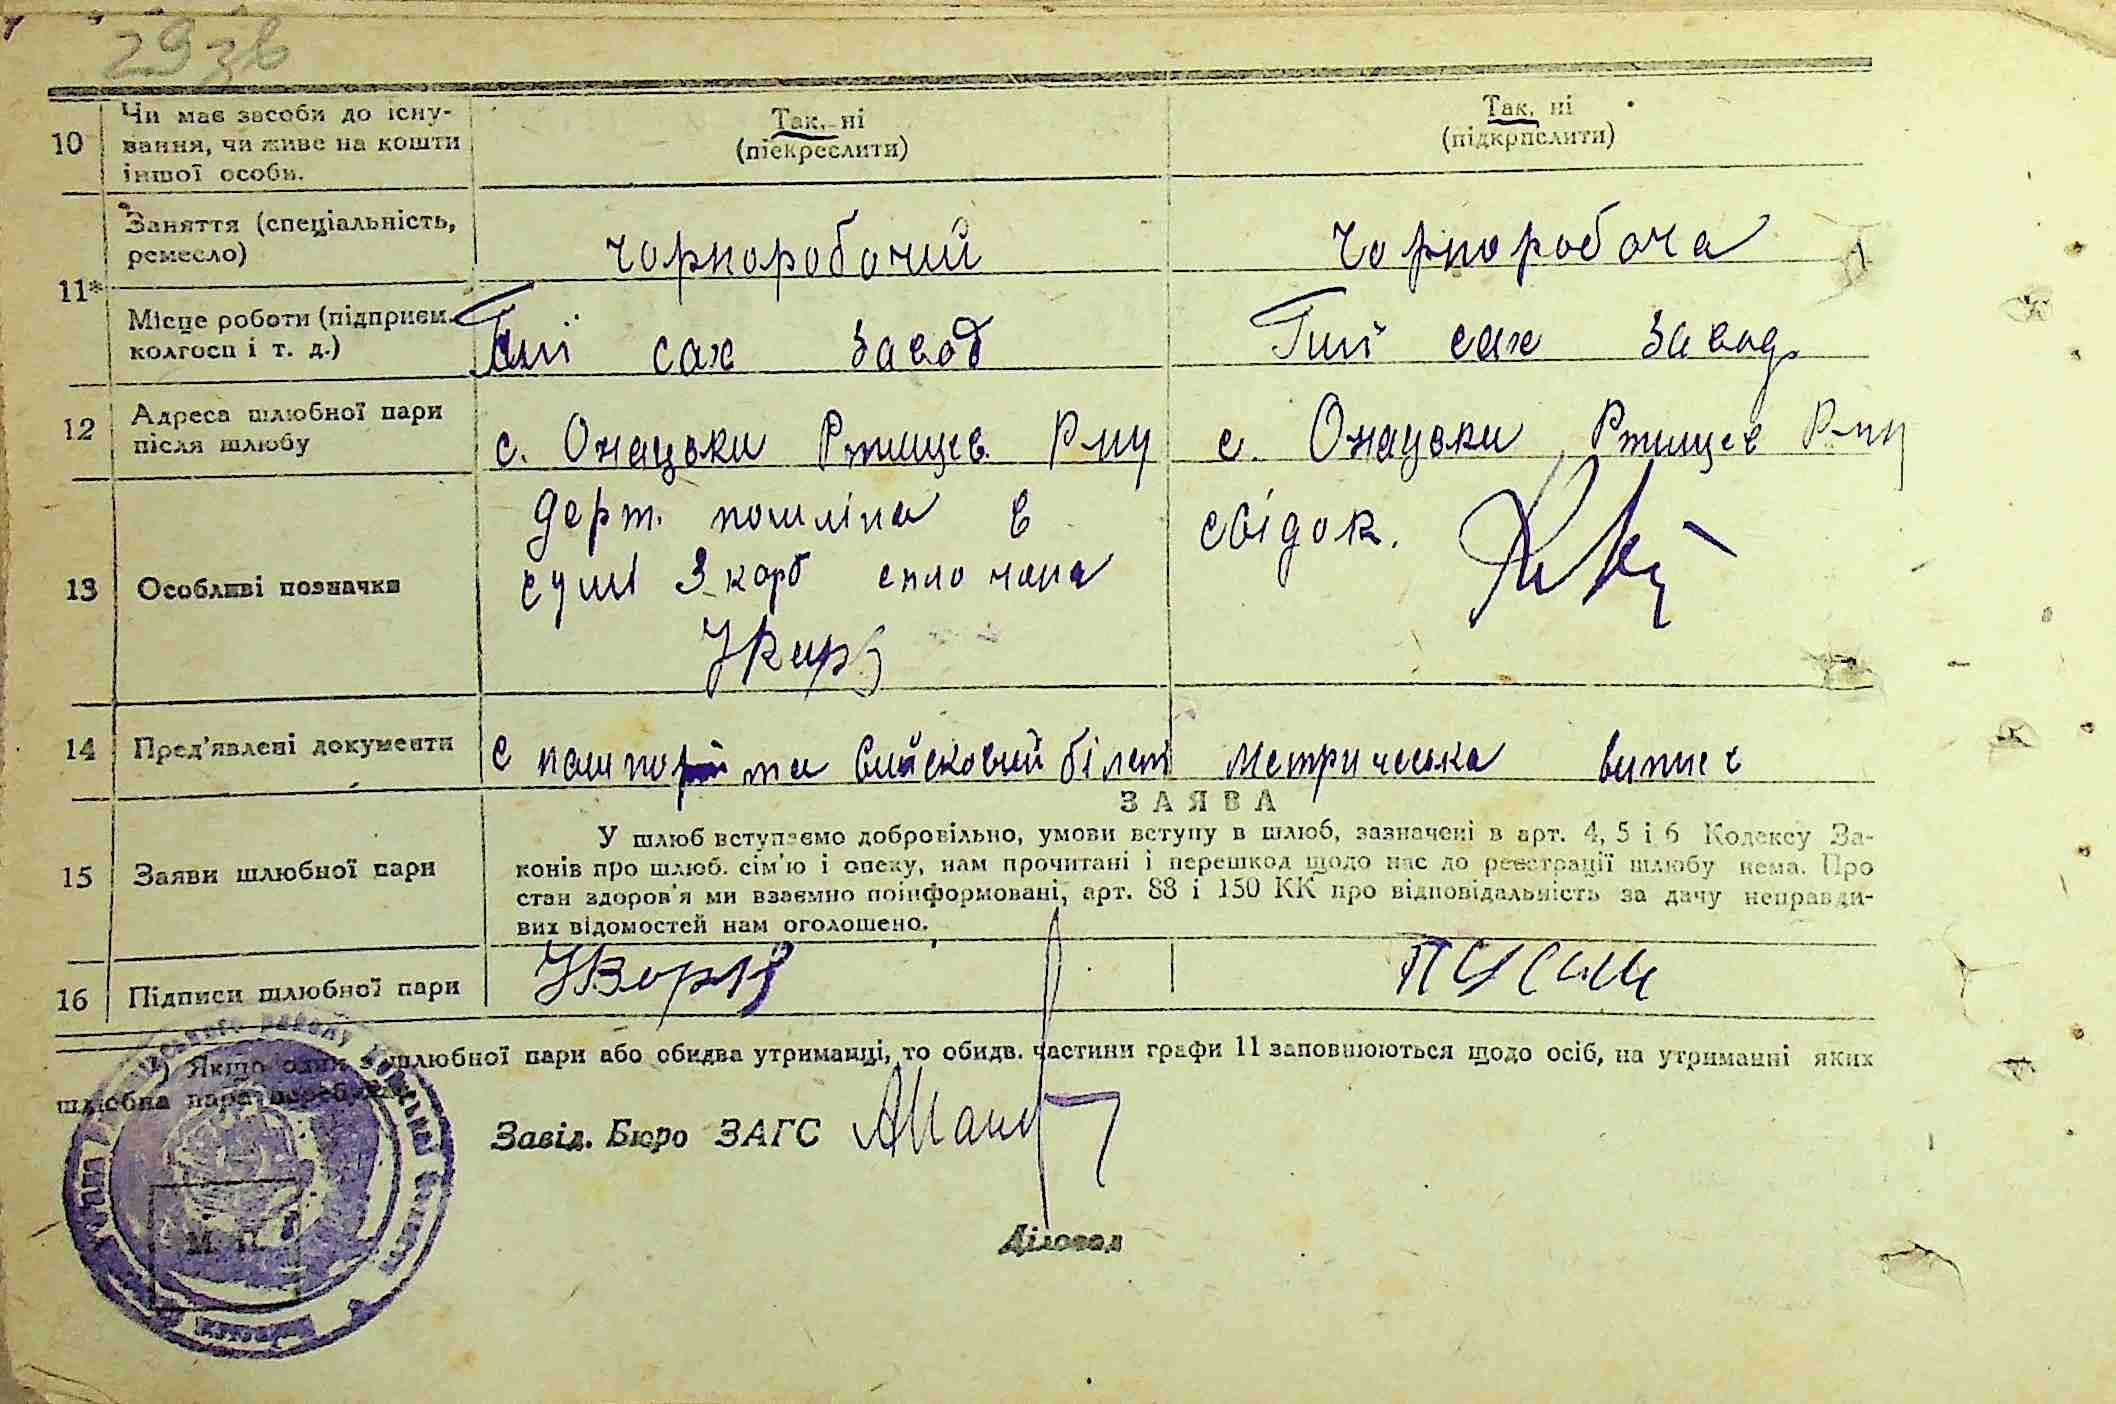 29зв
10 Чи має засоби до існу-
вання, чи живе на кошти
іншої особи.
Так, ні
(піекреслити)
Так, ні
(підкрпслити)
11*
Заняття (спеціальність,
ремесло)
чорноробочий
чорноробоча
Місце роботи (підприєм.
колгосп і т. д.)
сах завод
сах завод
12 Адреса шлюбної пари
після шлюбу
с. Онацьки Ржищев.
с. Онацьки Ржищев
13 Особливі позначки
держ. пошліна в
сумі 3 карб сплочена
свідок.
14 Пред'явлені документи
паш та війсковий білет
метрическа випис
15 Заяви шлюбної пари
ЗАЯВА
У шлюб вступаємо добровільно, умови вступу в шлюб, зазначені в арт. 4, 5 і 6 Кодексу За-
конів про шлюб. сім'ю і опеку, нам прочитані і перешкод щодо нас до реєстрації шлюбу нема. Про
стан здоров'я ми взаємно поінформовані, арт. 88 і 150 КК про відповідальність за дачу неправди-
вих відомостей нам оголошено.
16 Підписи шлюбної пари
*) Якщо один з шлюбної пари або обидва утриманці, то обидв. частини графи 11 заповнюються щодо осіб, на утриманні яких
шлюбна пара
Завід. Бюро ЗАГС
Діловод
М. П.